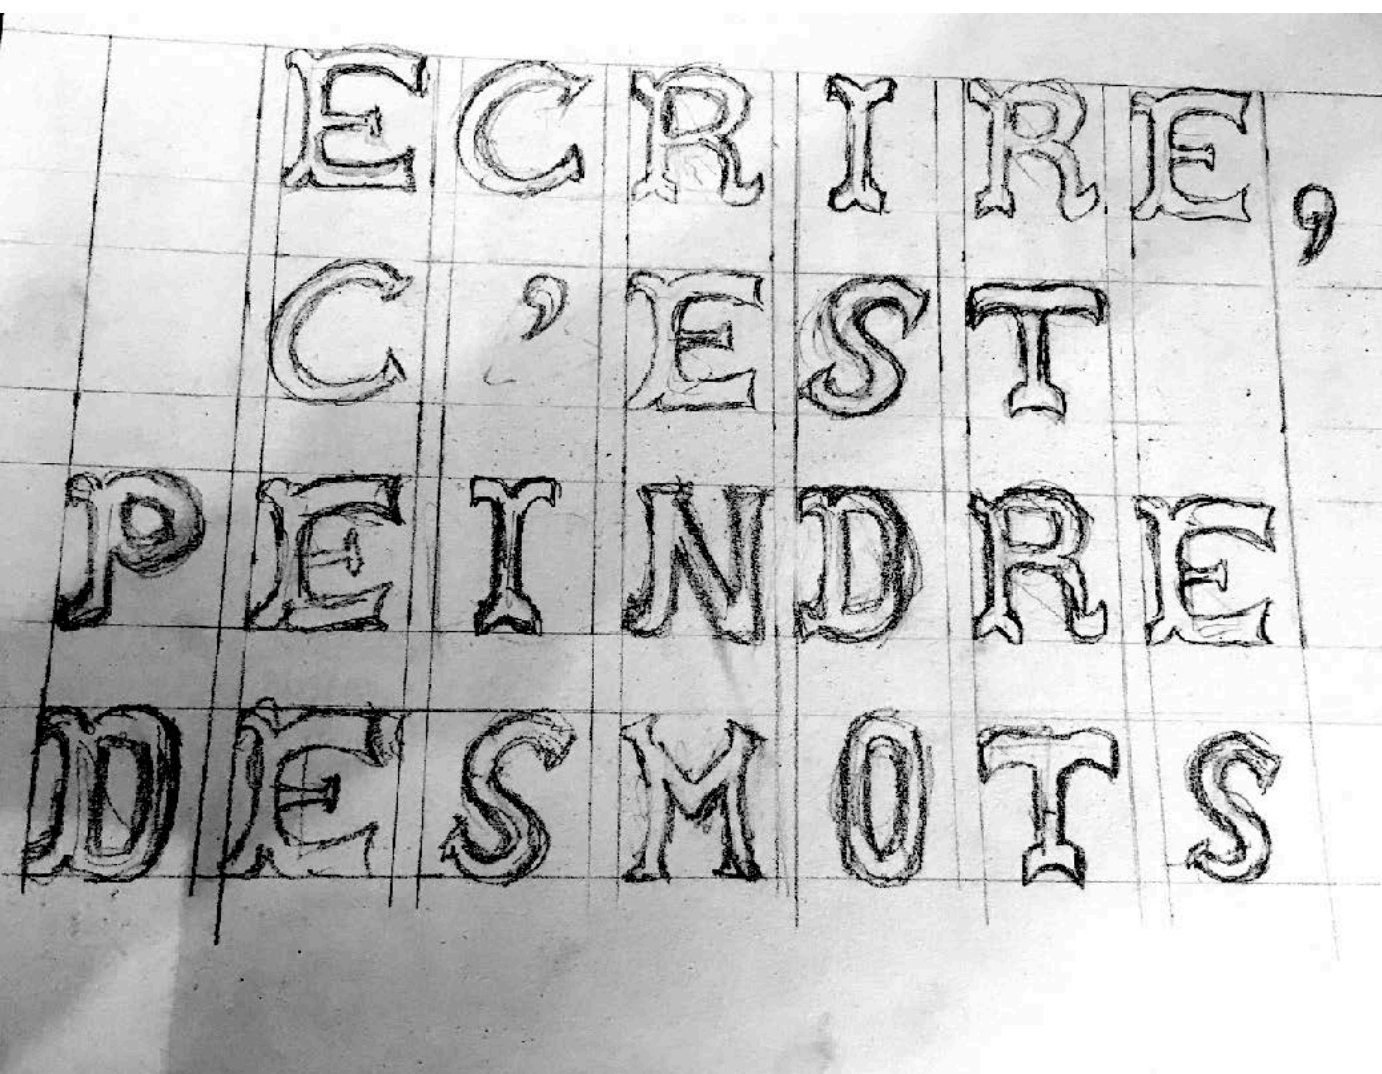 ECRIRE,
C'EST
PEINDRE
DESMOTS